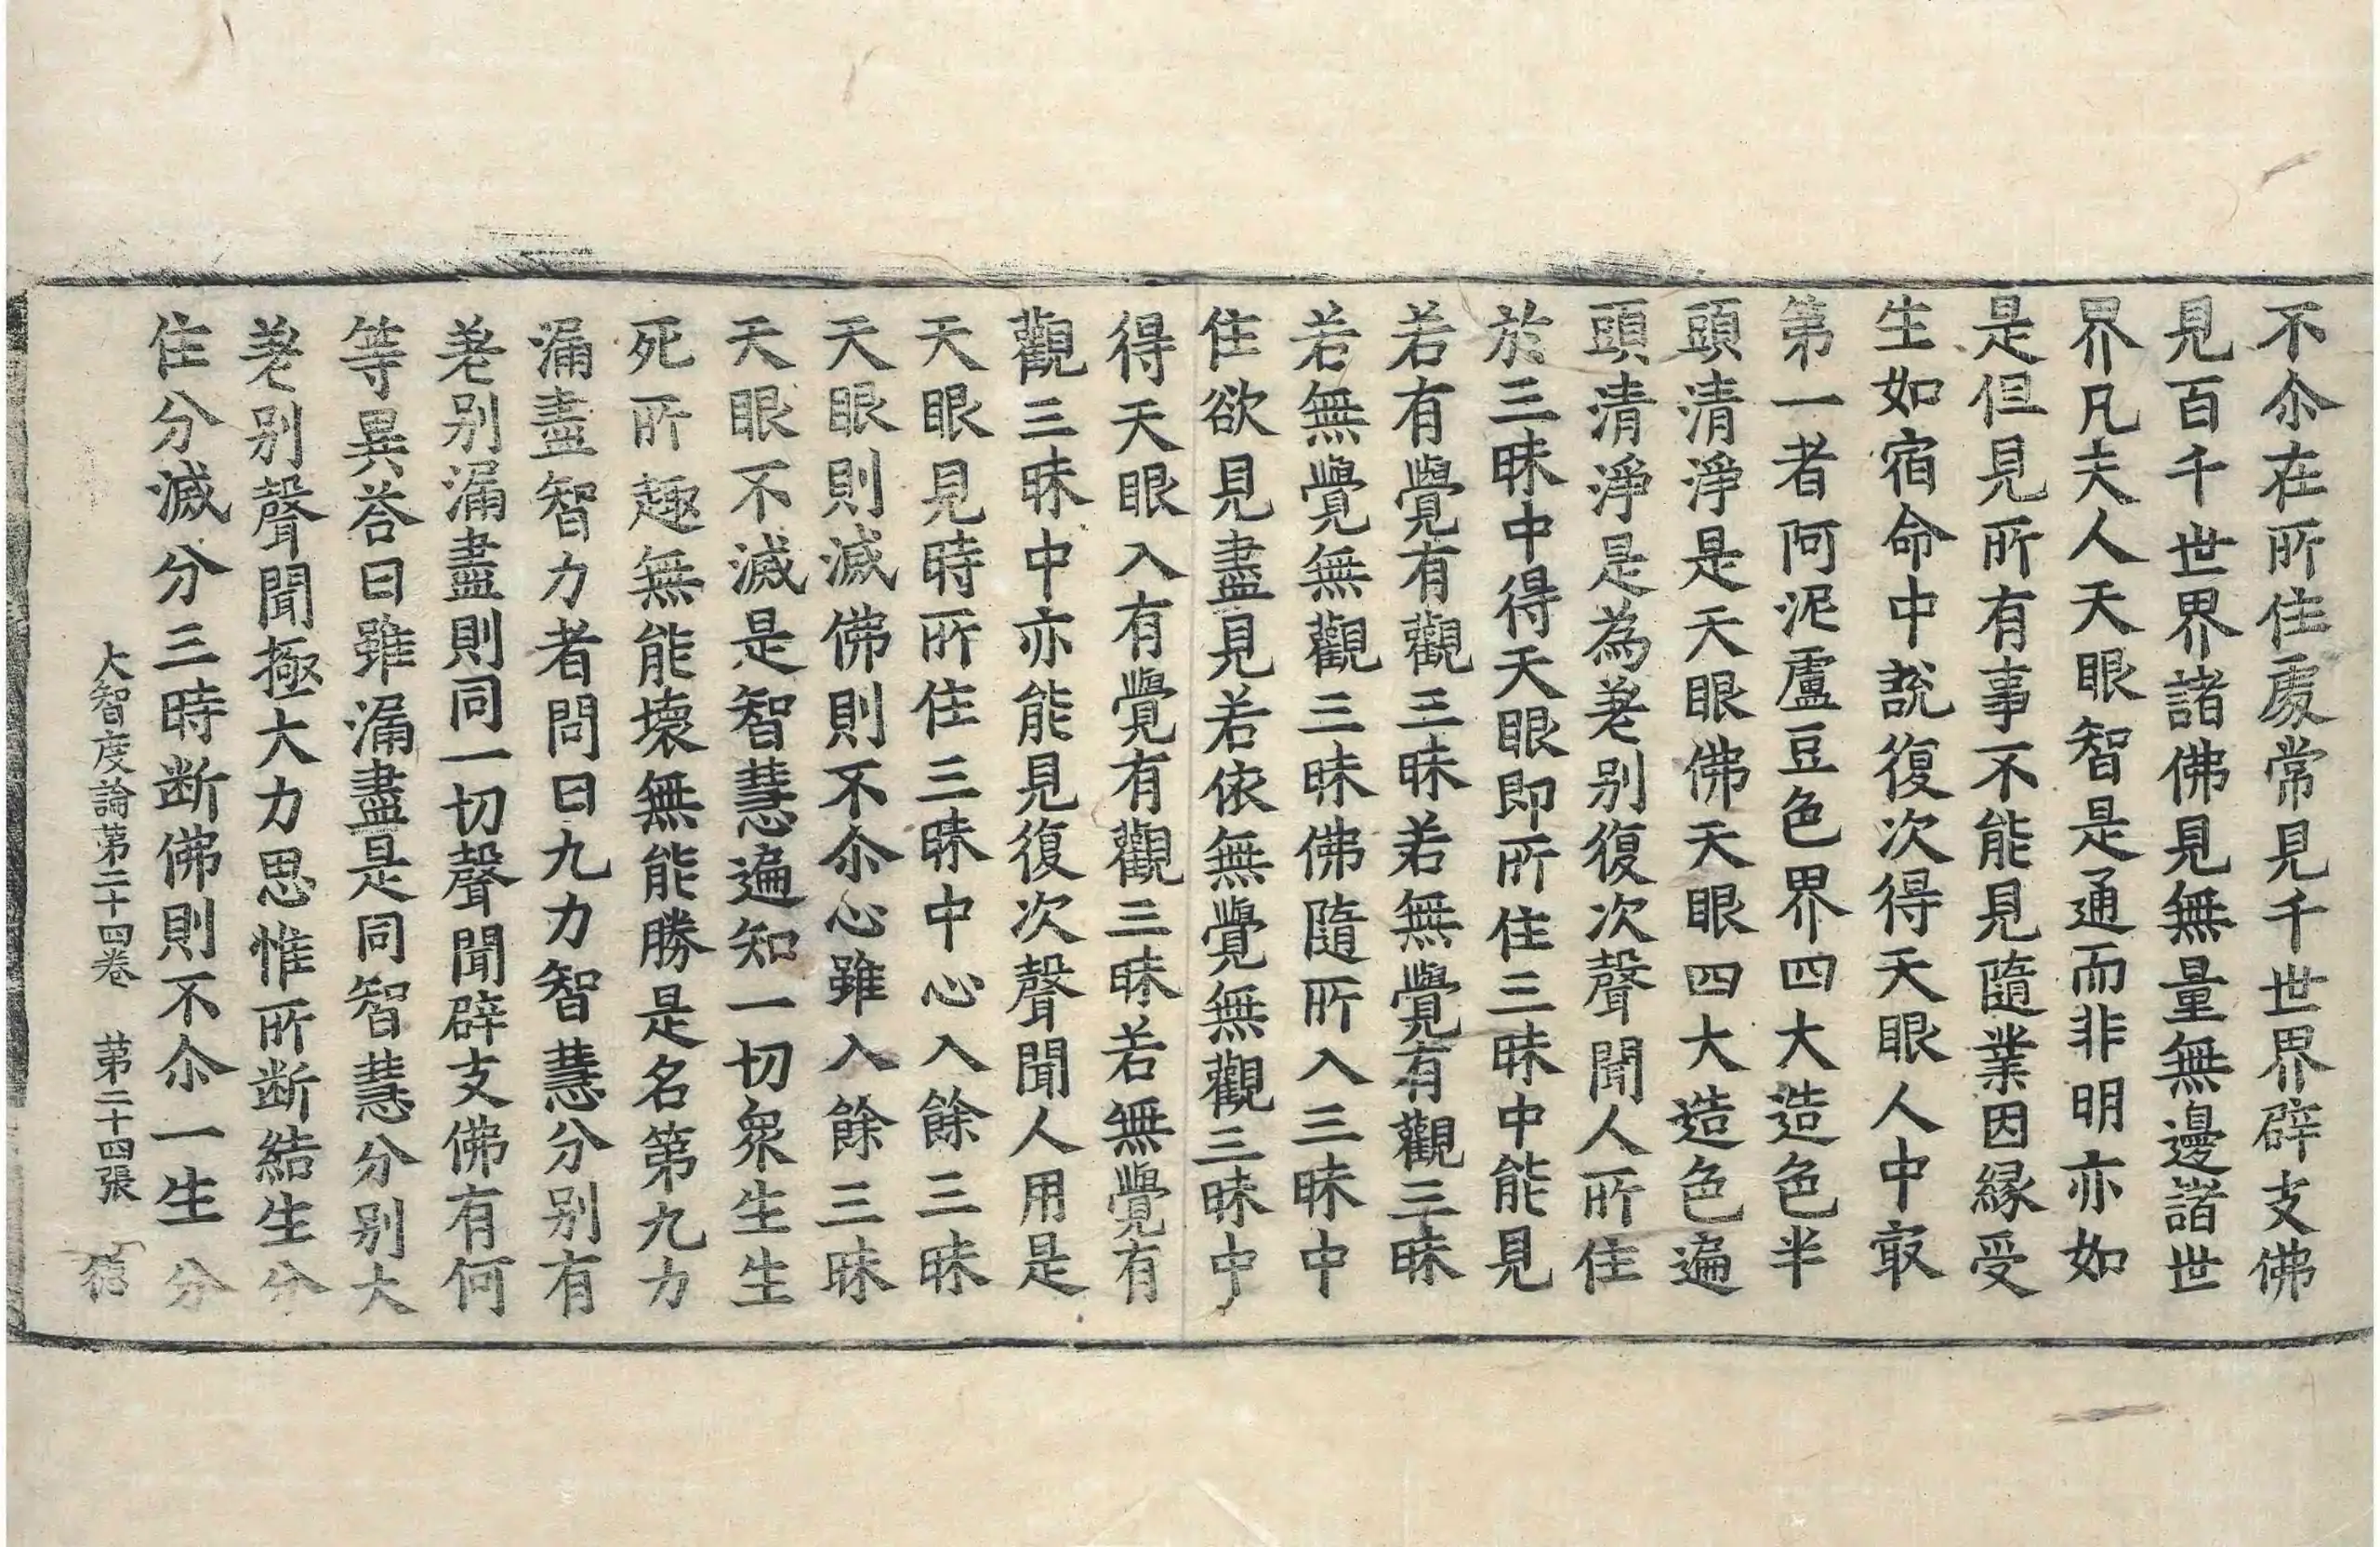 不尒在所住處常見千世界辟支佛
見百千世界諸佛見無量無邊諸世
界凡夫人天眼智是通而非明亦如
是但見所有事不能見隨業因縁受
生如宿命中說復次得天眼人中㝡
第一者阿泥盧豆色界四大造色半
頭清淨是天眼佛天眼四大造色遍
頭清淨是為差别復次聲聞人所住
於三昧中得天眼即所住三昧中能見
若有覺有觀三昧若無覺有觀三昧
若無覺無觀三昧佛隨所入三昧中
住欲見盡見若依無覺無觀三昧中
得天眼入有覺有觀三昧若無覺有
觀三昧中亦能見復次聲聞人用是
天眼見時所住三昧中心入餘三昧
天眼則滅佛則不尒心雖入餘三昧
天眼不滅是智慧遍知一切衆生生
死所趣無能壞無能勝是名第九力
漏盡智力者問曰九力智慧分别有
差别漏盡則同一切聲聞辟支佛有何
等異荅曰雖漏盡是同智慧分别大
差别聲聞極大力思惟所断結生分
住分滅分三時断佛則不尒一生分
大智度論第二十四卷　第二十四張